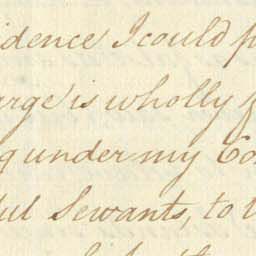 idence I could p
arge is wholly f
g under my Co
ful Servants, to